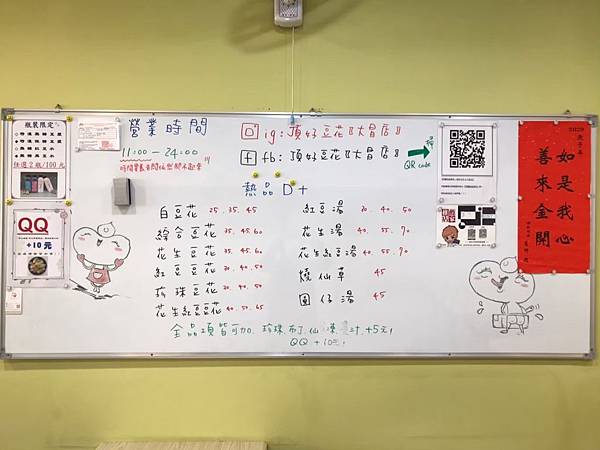 瓶裝限定
任選2瓶/100元
QQ
+10元
營業時間
11:00-24:00
ig:頂好豆花『大智店』
ffb:頂好豆花『大智店』
掃
QR code
熱品 D+
白豆花 25. 35. 45
綜合豆花 35. 45. 60
花生豆花 35. 45. 60
紅豆豆花 30. 40. 50
珍珠豆花 30. 40. 50
花生紅豆豆花 40. 50. 65
紅豆湯 30. 40. 50
花生湯 40. 55. 70
花生紅豆湯 40. 55. 70
燒仙草 45
圓仔湯 45
全品項皆可加. 珍珠. 布丁. 仙
汁. +5元!
QQ +10元!
2020
庚子年
如是我心
善來金開